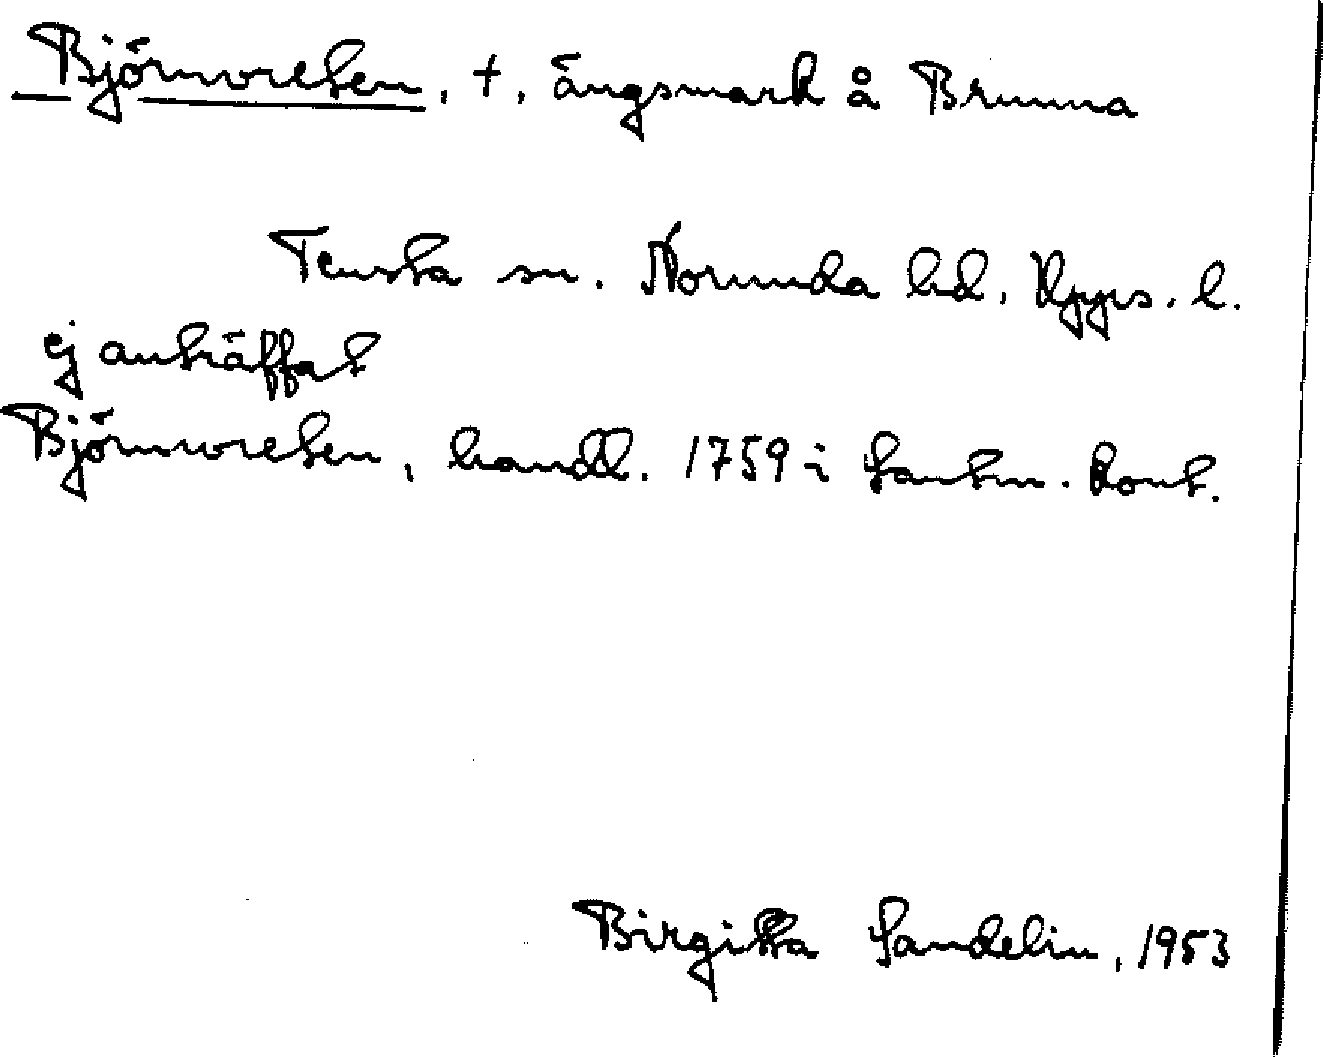 Björnwreten, †, ängsmark å Brunna
Tensta sn. Norunda hd. Upps. l.
ej anträffat
Björnwreten, handl. 1759 i Lantm. kont.
Birgitta Sandelin, 1953